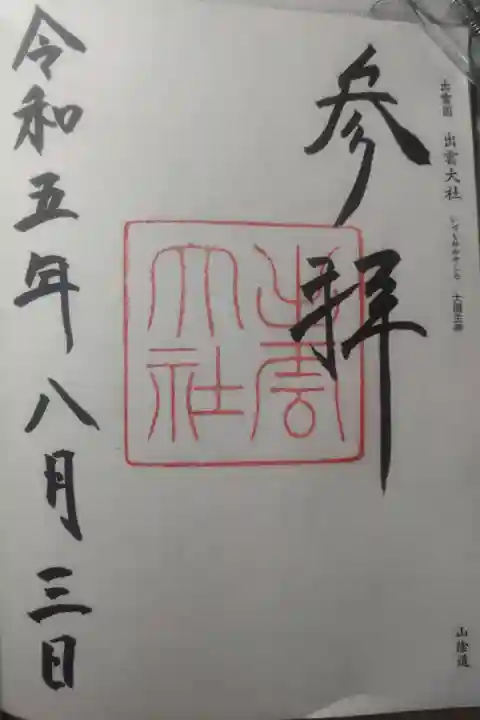 出雲國 出雲大社 いづもおおやしろ 大国主神
山陰道
参拝
出雲
大社
令和五年八月三日